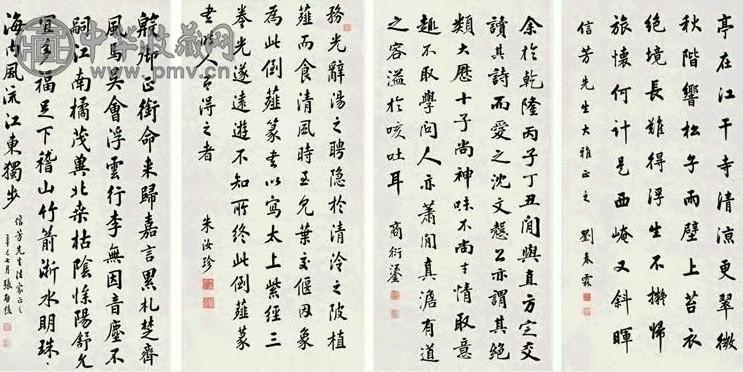 亭在江干寺清涼更翠微
秋階響松子雨壁上苔衣
絕境長難得浮生不擬歸
旅懷何計是西崦又斜暉
信芳先生大雅正之 劉春霖
余於乾隆丙子丁丑間與直方定交
讀其詩而愛之沈文慤公亦謂其絕
類大歷十子尚神味不尚才情取意
趣不取學問人亦蕭閒真澹有道
之容溢於咳吐耳 商衍鎏
務光辭湯之聘隱於清泠之陂植
薤而食清風時至見葉交偃因象
為此倒薤篆書以寫太上紫經三
卷光遂遠遊不知所終此倒薤篆
書時人得之者 朱汝珍
御正銜命來歸嘉言累札楚齊
風馬吳會浮雲行李無因音塵不
嗣江南橘茂冀北桑枯陰慘陽舒允
宜多福足下稽山竹箭浙水明珠
海內風流江東獨步
信芳先生法家正之
辛巳七月張啟後
中华收藏网
www.pmv.cn